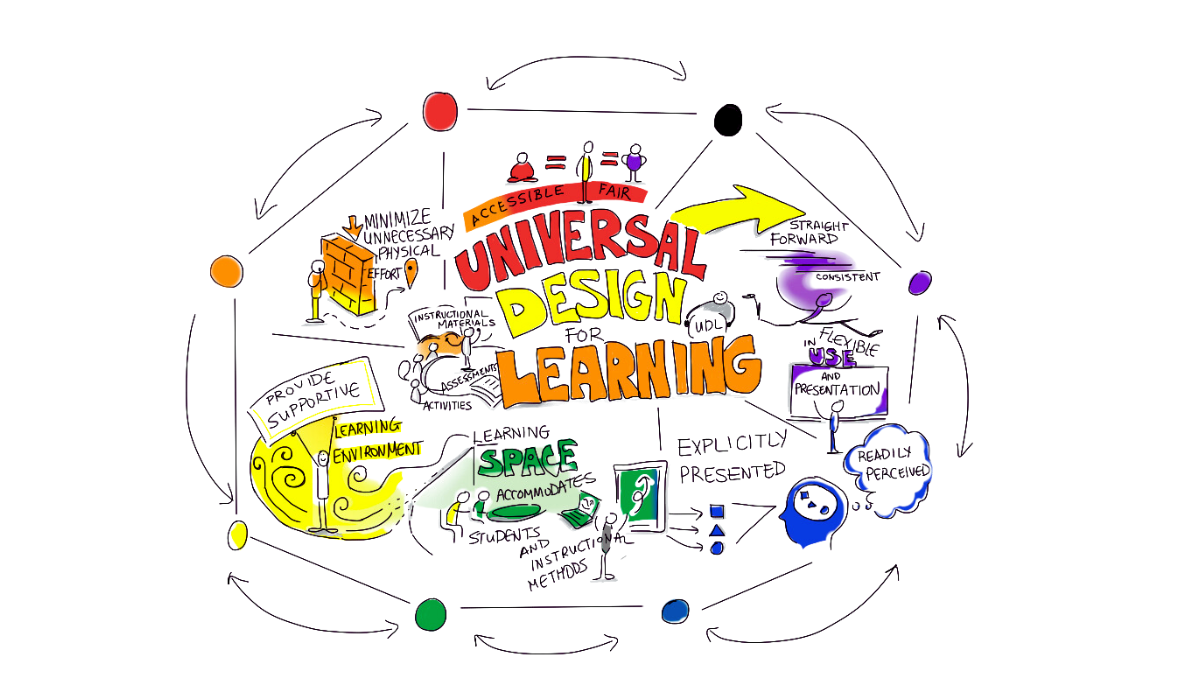 ACCESSIBLE FAIR
UNIVERSAL
DESIGN
FOR
LEARNING
UDL
MINIMIZE
UNNECESSARY
PHYSICAL
EFFORT
STRAIGHT
FORWARD
CONSISTENT
INSTRUCTIONAL
MATERIALS
ASSESSMENTS
ACTIVITIES
IN FLEXIBLE
USE
AND
PRESENTATION
PROVIDE
SUPPORTIVE
LEARNING
ENVIRONMENT
LEARNING
SPACE
ACCOMMODATES
STUDENTS
AND
INSTRUCTIONAL
METHODS
EXPLICITLY
PRESENTED
READILY
PERCEIVED